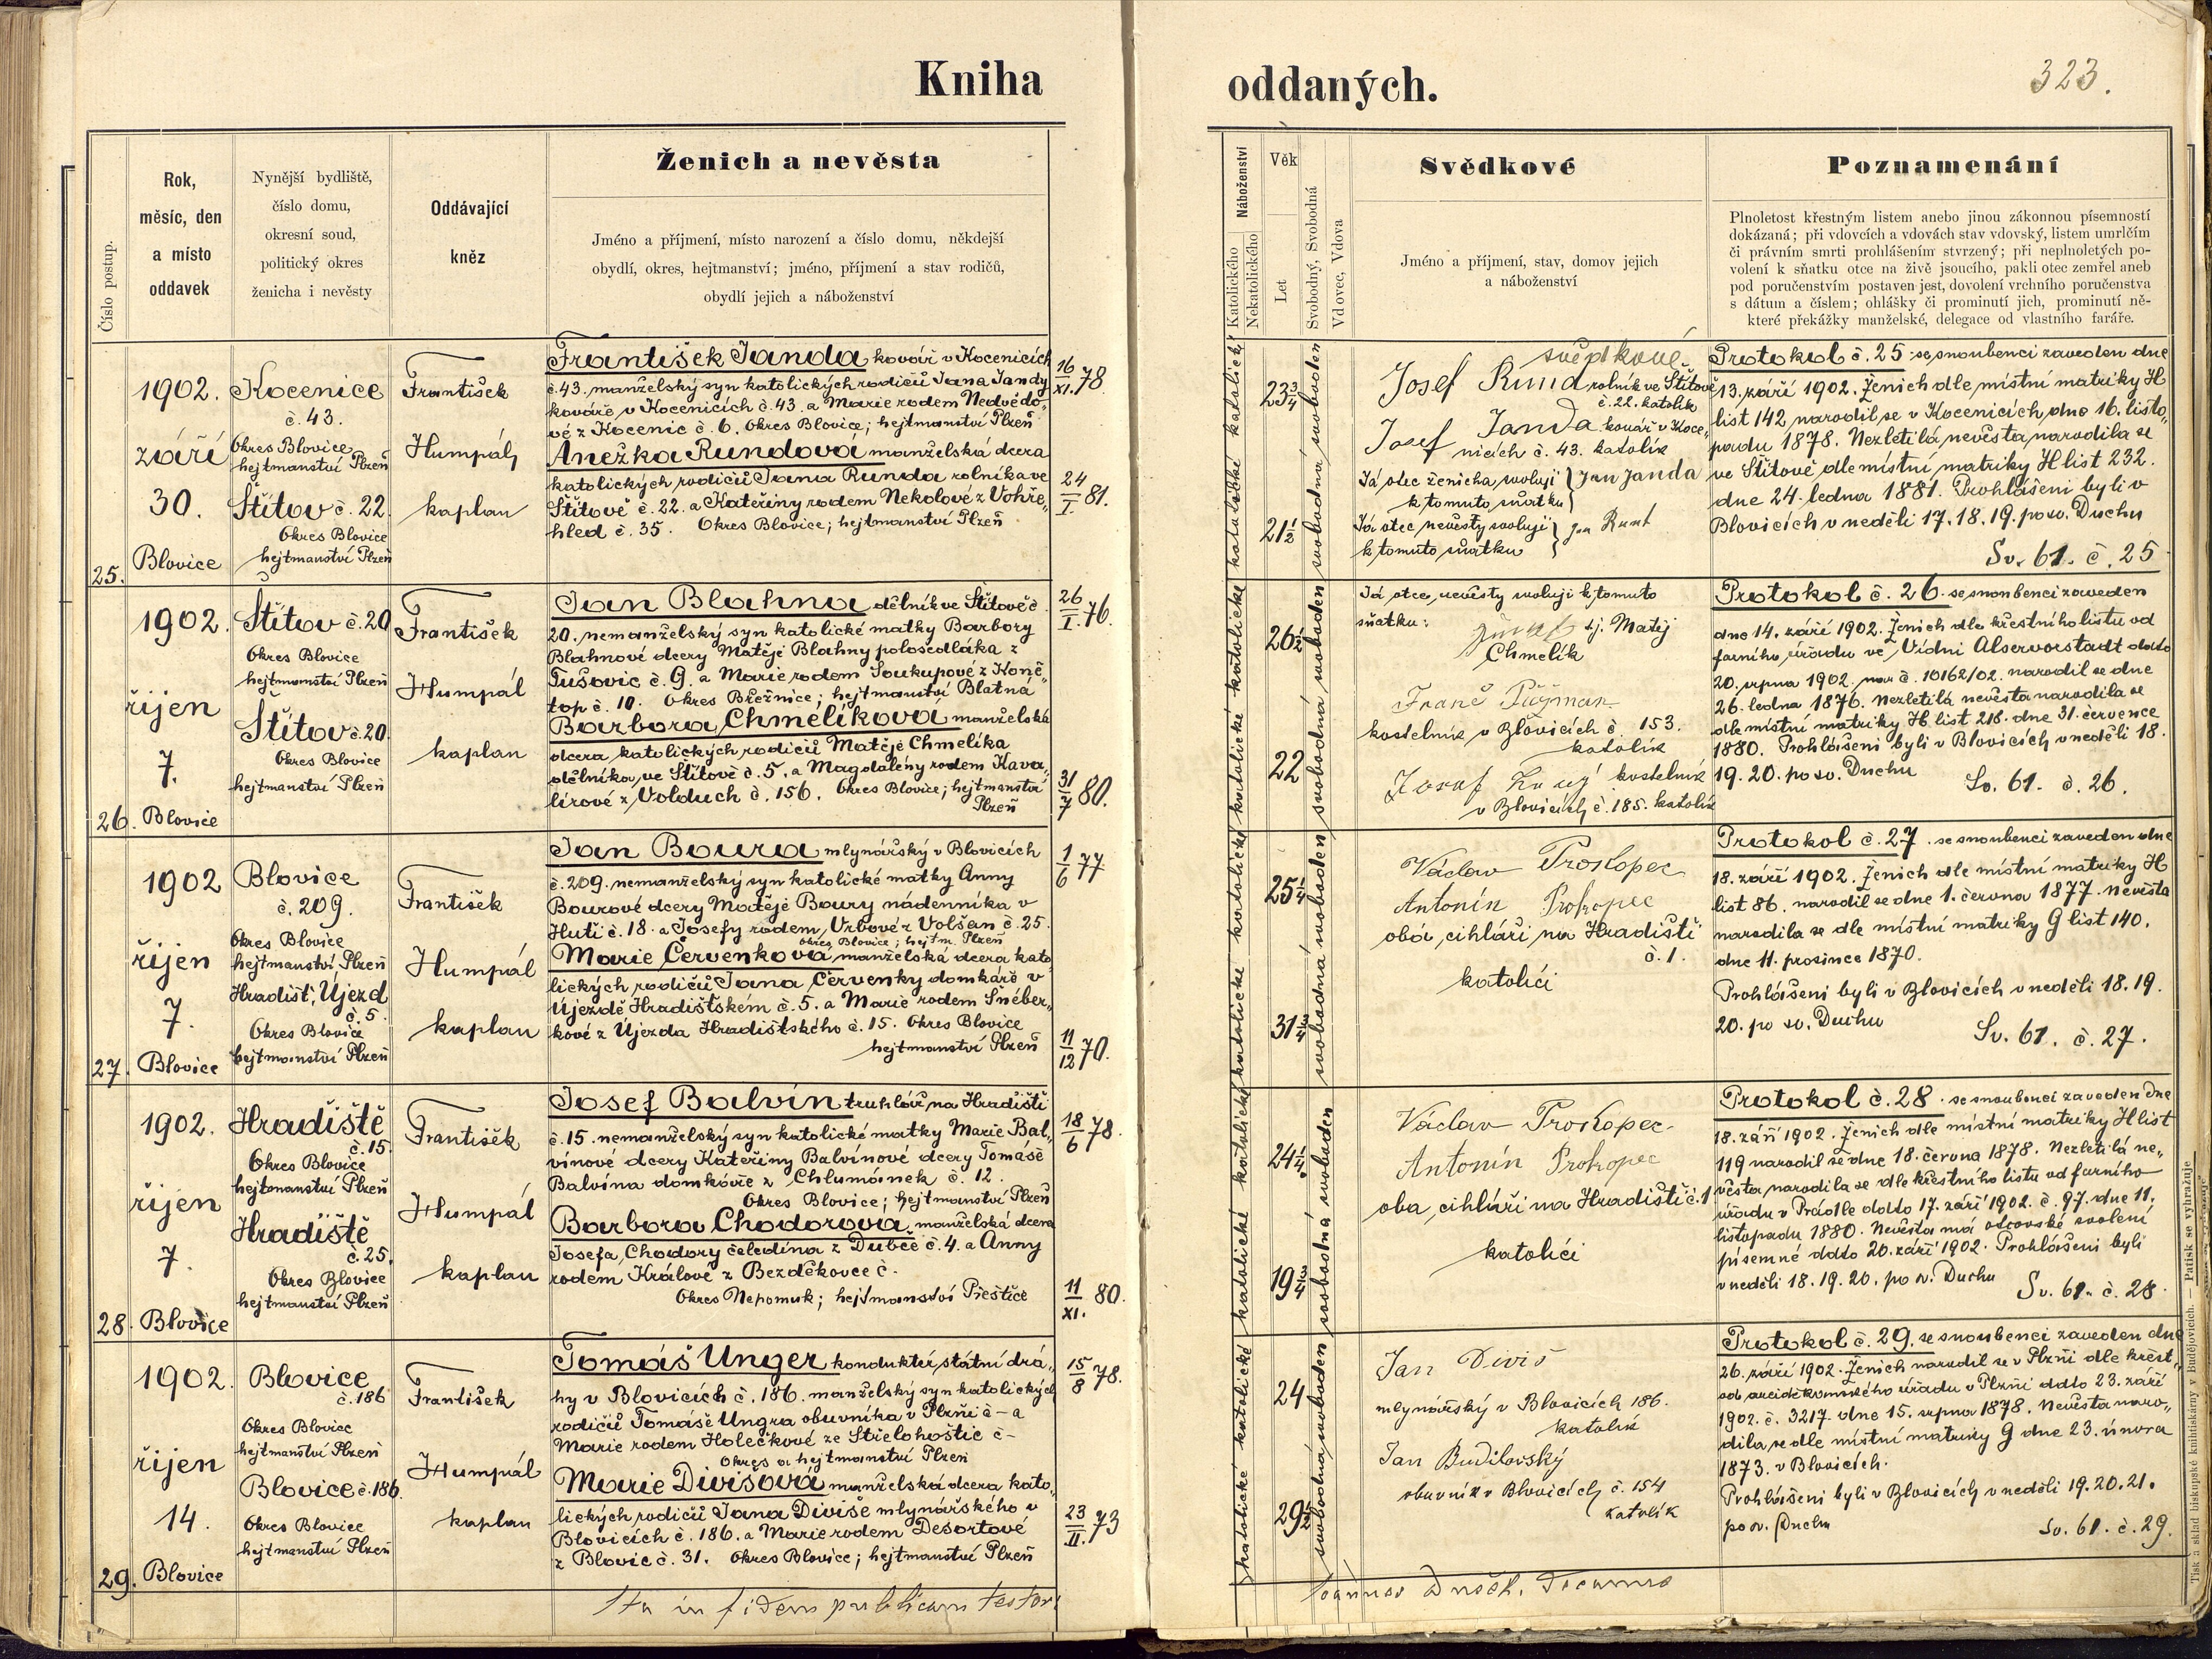 Kniha
oddaných.
323.
Číslo postup.
Rok,
měsíc, den
a místo
oddavek
Nynější bydliště,
číslo domu,
okresní soud,
politický okres
ženicha i nevěsty
Oddávající
kněz
Ženich a nevěsta
Jméno a příjmení, místo narození a číslo domu, někdejší
obydlí, okres, hejtmanství; jméno, příjmení a stav rodičů,
obydlí jejich a náboženství
Náboženství
Katolického
Nekatolického
Věk
Let
Svobodný, Svobodná
Vdovec, Vdova
Svědkové
Jméno a příjmení, stav, domov jejich
a náboženství
Poznamenání
Plnoletost křestným listem anebo jinou zákonnou písemností
dokázaná; při vdovcích a vdovách stav vdovský, listem umrlčím
či právním smrti prohlášením stvrzený; při neplnoletých po-
volení k sňatku otce na živě jsoucího, pakli otec zemřel aneb
pod poručenstvím postaven jest, dovolení vrchního poručenstva
s dátum a číslem; ohlášky či prominutí jich, prominutí ně-
které překážky manželské, delegace od vlastního faráře.
25.
1902.
září
30.
Blovice
Kocenice
č. 43.
Okres Blovice
hejtmanství Plzeň
Štítov č. 22.
Okres Blovice
hejtmanství Plzeň
František
Humpál
kaplan
František Janda kovář v Kocenicích
č. 43. manželský syn katolických rodičů Jana Jandy
kováře v Kocenicích č. 43. a Marie rodem Nedvědo„
vé z Kocenic č. 6. Okres Blovice; hejtmanství Plzeň
Anežka Rundová manželská dcera
katolických rodičů Jana Runda rolníka ve
Štítově č. 22. a Kateřiny rodem Nekolové z Vohře„
hled č. 35. Okres Blovice; hejtmanství Plzeň
16/XI. 78
24/I. 81.
katolické katolický
23 3/4
21 1/2
svobodná svoboden
svědkové
Josef Rund rolník ve Štítově
č. 22. katolík
Josef Janda kovář v Koce„
nicích č. 43. katolík
Já otec ženicha svoluji } Jan Janda
k tomuto sňatku
Já otec nevěsty svoluji } Jan Runt
k tomuto sňatku
Protokol č. 25 se snoubenci zaveden dne
13. září 1902. Ženich dle místní matriky H
list 142 narodil se v Kocenicích dne 16. listo„
padu 1878. Nezletilá nevěsta narodila se
ve Štítově dle místní matriky H list 232.
dne 24. ledna 1881. Prohlášeni byli v
Blovicích v neděli 17. 18. 19. po sv. Duchu
Sv. 61. č. 25
26.
1902.
říjen
7.
Blovice
Štítov č. 20
Okres Blovice
hejtmanství Plzeň
Štítov č. 20.
Okres Blovice
hejtmanství Plzeň
František
Humpál
kaplan
Jan Blahna dělník ve Štítově č.
20. nemanželský syn katolické matky Barbory
Blahnové dcery Matěje Blahny polosedláka z
Tušovic č. 9. a Marie rodem Soukupové z Koně„
top č. 10. Okres Břežnice; hejtmanství Blatná
Barbora Chmelíková manželská
dcera katolických rodičů Matěje Chmelíka
dělníka ve Štítově č. 5. a Magdalény rodem Kava„
lírové z Volduch č. 156. Okres Blovice; hejtmanství
Plzeň
26/I. 76.
31/7 80.
katolické katolické
26 1/2
22
svobodná svoboden
Já otec nevěsty svoluji k tomuto
sňatku: tj. Matěj
Chmelík
kostelník v Blovicích č. 153.
katolík
Josef kostelník
v Blovicích č. 185. katolík
Protokol č. 26. se snoubenci zaveden
dne 14. září 1902. Ženich dle křestního listu od
farního úřadu ve Vídni Alservorstadt ddto
20. srpna 1902. č. 10162/02. narodil se dne
26. ledna 1876. Nezletilá nevěsta narodila se
dle místní matriky H list 218. dne 31. července
1880. Prohlášeni byli v Blovicích v neděli 18.
19. 20. po sv. Duchu Sv. 61. č. 26.
27.
1902
říjen
7.
Blovice
Blovice
č. 209.
Okres Blovice
hejtmanství Plzeň
Hradišť. Újezd
č. 5.
Okres Blovice
hejtmanství Plzeň
František
Humpál
kaplan
Jan Boura mlynářský v Blovicích
č. 209. nemanželský syn katolické matky Anny
Bourové dcery Matěje Boury nádenníka v
Huti č. 18. a Josefy rodem Vrbové z Volšan č. 25.
Okres Blovice; hejtm. Plzeň
Marie Červenková manželská dcera kato„
lických rodičů Jana Červenky domkáře v
Újezdě Hradišťském č. 5. a Marie rodem Šnéber„
kové z Újezda Hradišťského č. 15. Okres Blovice
hejtmanství Plzeň
1/6 77
11/12 70.
katolické katolické
25 1/4
31 3/4
svobodná svoboden
Václav Prokopec
Antonín Prokopec
oba cihláři na Hradišti
č. 1.
katolíci
Protokol č. 27. se snoubenci zaveden dne
18. září 1902. Ženich dle místní matriky H
list 86. narodil se dne 1. června 1877. Nevěsta
narodila se dle místní matriky G list 140.
dne 11. prosince 1870.
Prohlášeni byli v Blovicích v neděli 18. 19.
20. po sv. Duchu
Sv. 61. č. 27.
28.
1902.
říjen
7.
Blovice
Hradiště
č. 15.
Okres Blovice
hejtmanství Plzeň
Hradiště
č. 25.
Okres Blovice
hejtmanství Plzeň
František
Humpál
kaplan
Josef Balvín truhlář na Hradišti
č. 15. nemanželský syn katolické matky Marie Bal„
vínové dcery Kateřiny Balvínové dcery Tomáše
Balvína domkáře z Chlumánek č. 12.
Okres Blovice; hejtmanství Plzeň
Barbora Chodorová manželská dcera
Josefa Chodory čeledína z Dubče č. 4. a Anny
rodem Králové z Bezděkovce č.
Okres Nepomuk; hejtmanství Přeštice
18/6 78.
11/XI. 80.
katolické katolické
24 1/4
19 3/4
svobodná svoboden
Václav Prokopec
Antonín Prokopec
oba cihláři na Hradišti č. 1
katolíci
Protokol č. 28. se snoubenci zaveden dne
18. září 1902. Ženich dle místní matriky H list
119 narodil se dne 18. června 1878. Nezletilá ne„
věsta narodila se dle křestního listu od farního
úřadu v Prádle ddto 17. září 1902. č. 97. dne 11.
listopadu 1880. Nevěsta má otcovské svolení
písemné ddto 20. září 1902. Prohlášeni byli
v neděli 18. 19. 20. po sv. Duchu Sv. 61. č. 28.
29.
1902.
říjen
14.
Blovice
Blovice
č. 186
Okres Blovice
hejtmanství Plzeň
Blovice č. 186.
Okres Blovice
hejtmanství Plzeň
František
Humpál
kaplan
Tomáš Unger konduktér státní drá„
hy v Blovicích č. 186. manželský syn katolických
rodičů Tomáše Ungra obuvníka v Plzni č – a
Marie rodem Holečkové ze Střelohoštic č –
Okres a hejtmanství Plzeň
Marie Divišová manželská dcera kato„
lických rodičů Jana Diviše mlynářského v
Blovicích č. 186. a Marie rodem Desortové
z Blovic č. 31. Okres Blovice; hejtmanství Plzeň
15/8 78.
23/II. 73
katolické katolické
24
29 1/2
svobodná svoboden
Jan Diviš
mlynářský v Blovicích 186.
katolík
Jan Budilovský
obuvník v Blovicích č. 154
katolík
Protokol č. 29. se snoubenci zaveden dne
26. září 1902. Ženich narodil se v Plzni dle křest„
od arciděkanského úřadu v Plzni ddto 23. září
1902. č. 3217. dne 15. srpna 1878. Nevěsta naro„
dila se dle místní matriky G dne 23. února
1873. v Blovicích.
Prohlášeni byli v Blovicích v neděli 19. 20. 21.
po sv. Duchu
Sv. 61. č. 29.
Ita in fidem publicam testor:
Tisk a sklad biskupské knihtiskárny v Budějovicích. — Patisk se vyhražuje